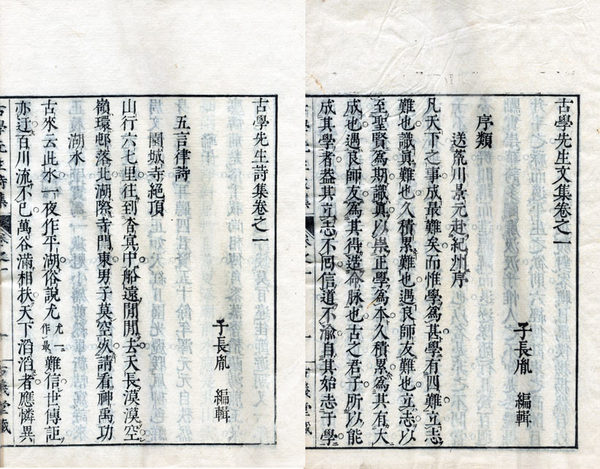 古學先生文集卷之一
子長胤 編輯
序類
送荒川景元赴紀州序
凡天下之事成最難矣而惟學爲甚學有四難立志
難也識眞難也久積累難也遇良師友難也立志以
至聖賢爲期識眞以崇正學爲本久積累爲其有大
成也遇良師友爲其得造命脉也古之君子所以能
成其學者盖其立志不回信道不渝自其始志于學
古學先生詩集卷之一
子長胤 編輯
五言律詩
園城寺絶頂
山行六七里往到杳冥中船遠閒閒去天長漠漠空
嶺環邨落北湖際寺門東男子莫空請看神禹功
湖水
古來云此水一夜作平湖俗說尤尤一作最難信世傳詎
亦迂百川流不已萬谷滿相扶天下滔滔者應憐異
古學先生詩集 卷之一 古義堂藏